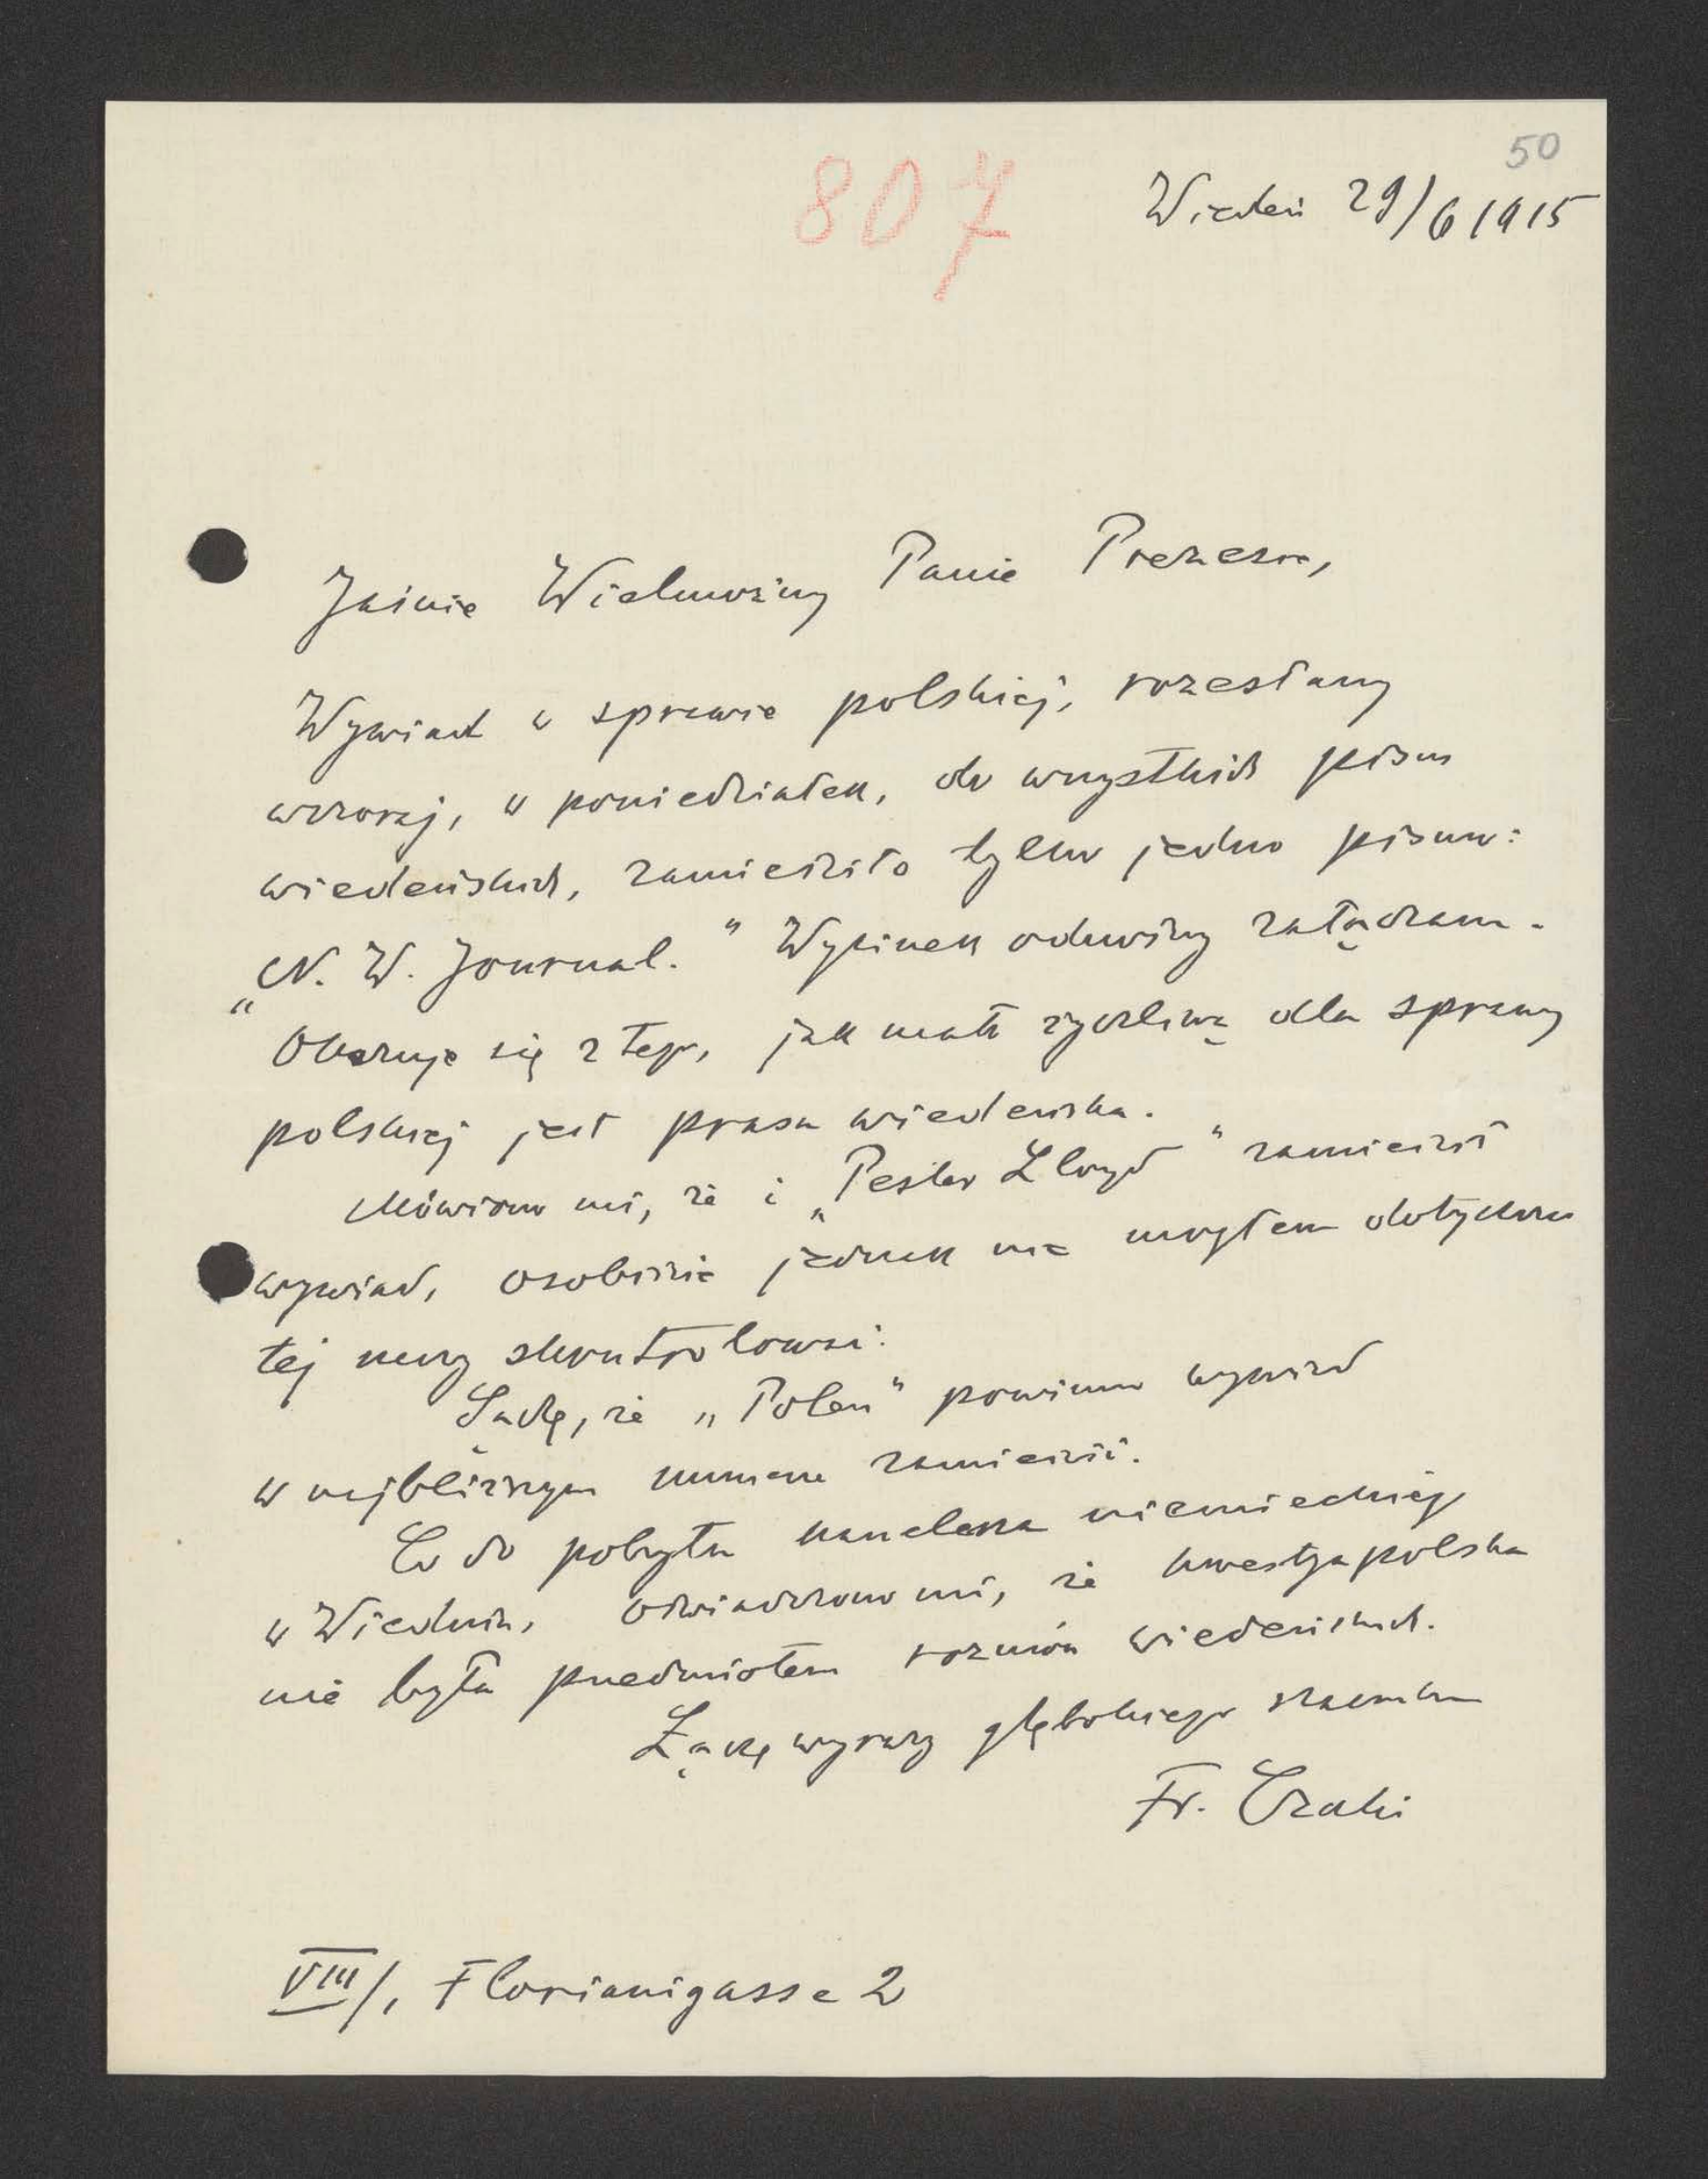 50
807
Wiedeń 29/6 1915
Jaśnie Wielmożny Panie Prezesie,
Wywiad w sprawie polskiej, rozesłany
wczoraj, w poniedziałek, do wszystkich pism
wiedeńskich, zamieściło tylko jedno pismo:
„N. W. Journal." Wycinek odnośny załączam.
Okazuje się z tego, jak mało życzliwą dla sprawy
polskiej jest prasa wiedeńska.
Mówiono mi, że i „Pester Lloyd" zamieścił
wywiad, osobiście jednak nie mogłem dotychczas
tej rzeczy skontrolować.
Sądzę, że „Polen" powinno wywiad
w najbliższym numerze zamieścić.
Co do pobytu kanclerza niemieckiego
w Wiedniu, oświadczono mi, że kwestja polska
nie była przedmiotem rozmów wiedeńskich.
Łączę wyrazy głębokiego szacunku
Fr. Czaki
VIII/, Florianigasse 2